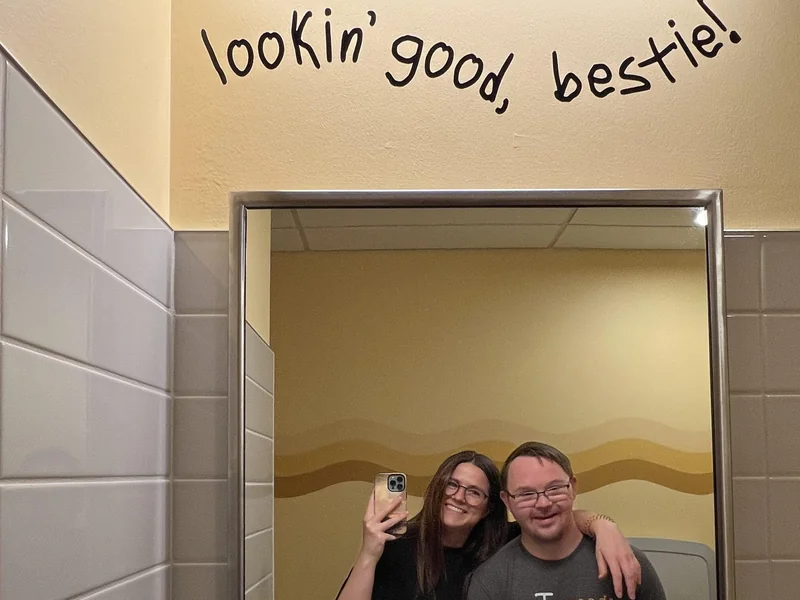 lookin' good, bestie!